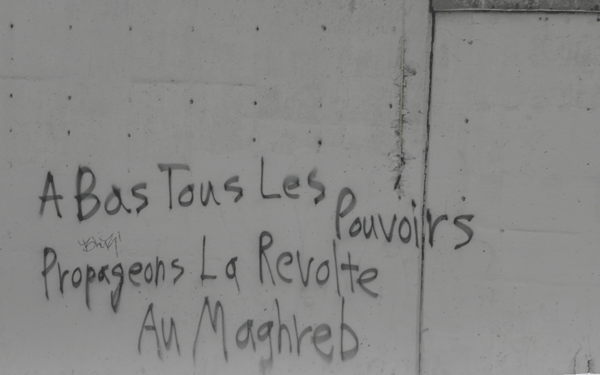 A Bas Tous Les Pouvoirs
Propageons La Revolte
Au Maghreb